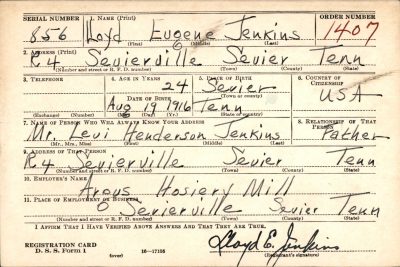 SERIAL NUMBER 1. NAME (Print) ORDER NUMBER
856 Loyd Eugene Jenkins 1407
(First) (Middle) (Last)
2. ADDRESS (Print)
R4 Sevierville Sevier Tenn
(Number and street or R. F. D. number) (Town) (County) (State)
3. TELEPHONE 4. AGE IN YEARS 5. PLACE OF BIRTH 6. COUNTRY OF CITIZENSHIP
24 Sevier
(Town or county)
DATE OF BIRTH USA
Aug 19 1916 Tenn
(Exchange) (Number) (Mo.) (Day) (Yr.) (State or country)
7. NAME OF PERSON WHO WILL ALWAYS KNOW YOUR ADDRESS 8. RELATIONSHIP OF THAT PERSON
Mr. Levi Henderson Jenkins Father
(Mr., Mrs., Miss) (First) (Middle) (Last)
9. ADDRESS OF THAT PERSON
R4 Sevierville Sevier Tenn
(Number and street or R. F. D. number) (Town) (County) (State)
10. EMPLOYER'S NAME
Argus Hosiery Mill
11. PLACE OF EMPLOYMENT OR BUSINESS
Sevierville Sevier Tenn
(Number and street or R. F. D. number) (Town) (County) (State)
I AFFIRM THAT I HAVE VERIFIED ABOVE ANSWERS AND THAT THEY ARE TRUE.
REGISTRATION CARD
D. S. S. Form 1 (over) 16—17105 Lloyd E. Jenkins
(Registrant's signature)